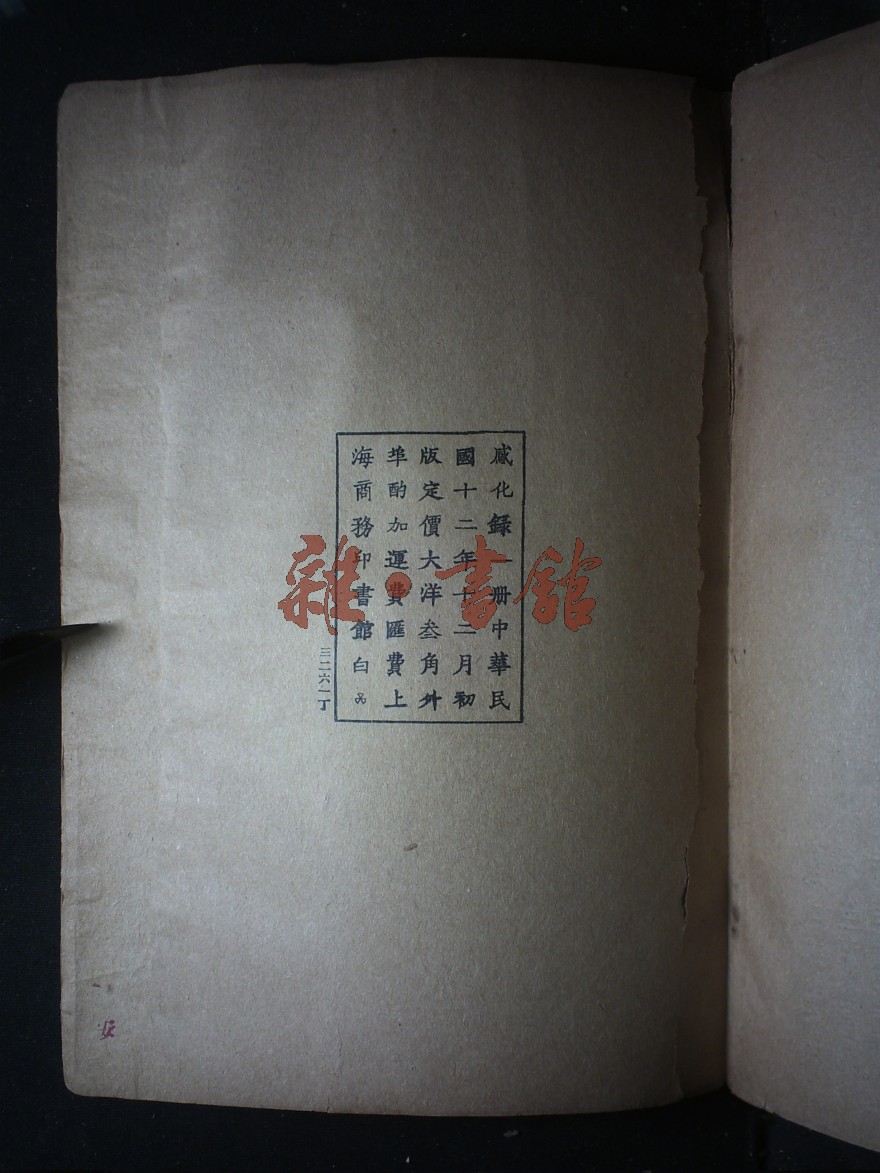 感化録一册中華民
國十二年十二月初
版定價大洋叁角外
埠酌加運費匯費上
海商務印書館白
三二六一丁
雜·書館